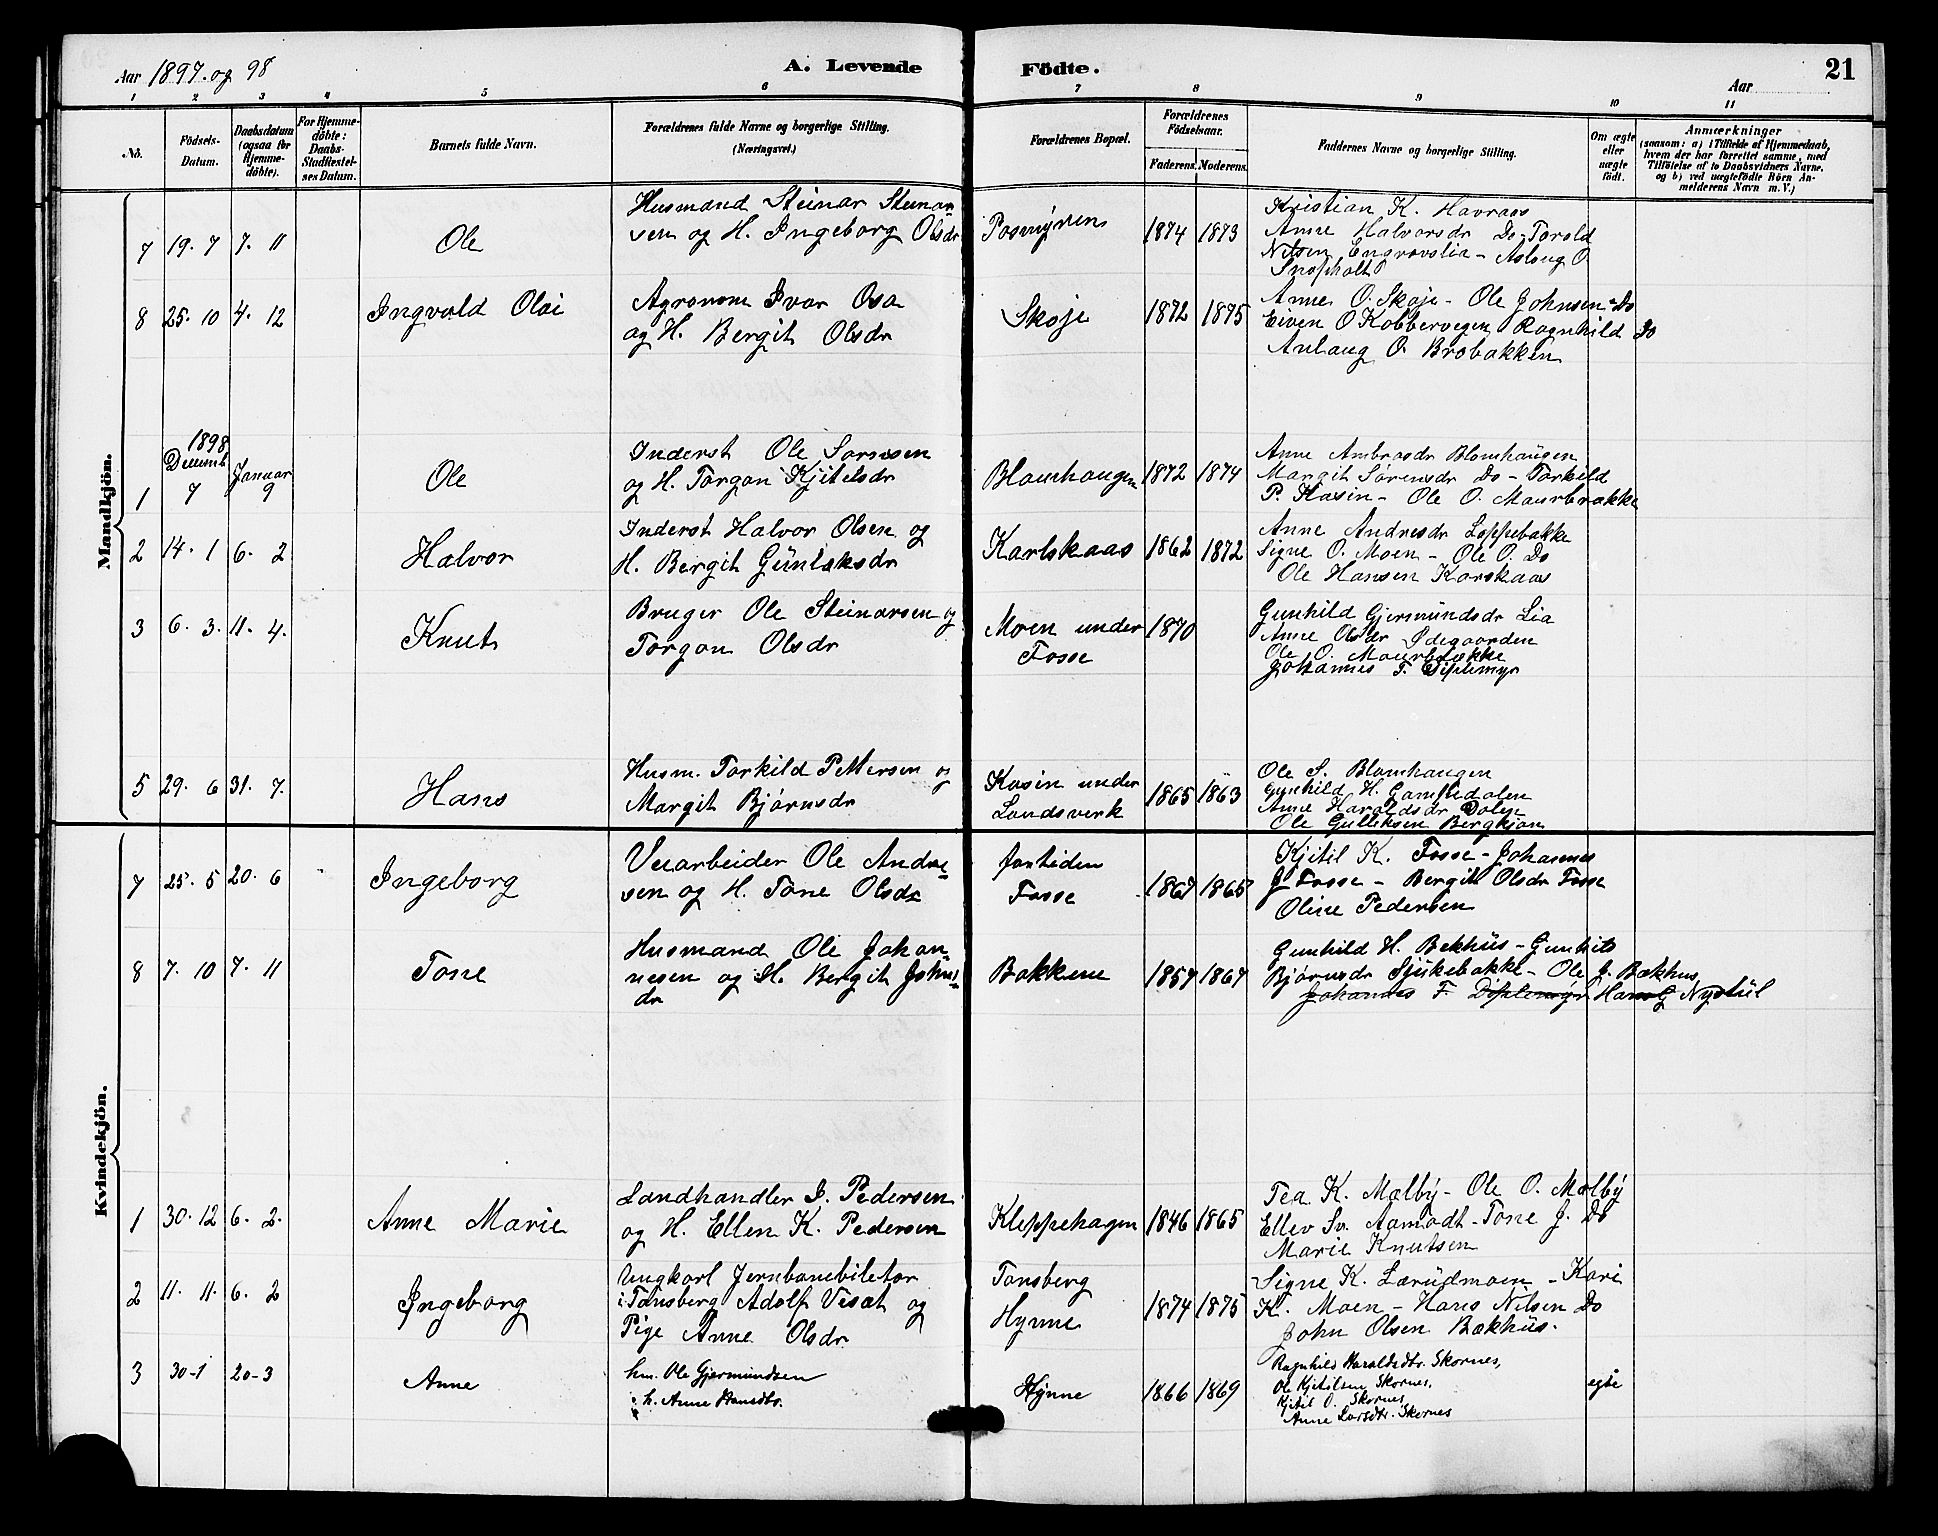 Aar 1897. og 98
A. Levende Födte.
Aar
21
1 2 3 4 5 6 7 8 9 10 11
No.
Födsels-Datum.
Daabsdatum (ogsaa for Hjemme-döbte).
For Hjemme-döbte: Daabs-Stadfæstel-ses Datum.
Barnets fulde Navn.
Forældrenes fulde Navne og borgerlige Stilling. (Næringsvei.)
Forældrenes Bopæl.
Forældrenes Födselsaar.
Faderens. Moderens.
Faddernes Navne og borgerlige Stilling.
Om ægte eller uægte födt.
Anmærkninger
(saasom: a) i Tilfælde af Hjemmedaab,
hvem der har forrettet samme, med
Tilföielse af to Daabsvidners Navne,
og b) ved uægtefödte Börn An-
melderens Navn m. V.)
Mandkjön.
7 19. 7 7. 11 Ole
Husmand Steinar Steinar
sen og H. Ingeborg Olsdr
Posmyren 1874 1873
Kristian K. Havraas
Anne Halvorsdr Do - Torold
Nilsen Engravslia - Aslaug O
8 25. 10 4. 12 Ingvald Olai
Agronom Ivar Osa
og H. Bergit Olsdr
Skoje 1872 1875
Anne O. Skoje - Ole Johnsen - Do
Eiven O Kobbervegen Ragnhild Do
Anlaug O. Brobakken
1898
1 Decemb 7 Januar 9 Ole
Inderst Ole Sørnsen
og H. Torgon Kjitelsdr
Blomhaugen 1872 1874
Anne Ambrosdr Blomhaugen
Margit Sørensdr Do - Torkild
P. Kasin - Ole O. Maurbrække
2 14. 1 6. 2 Halvor
Inderst Halvor Olsen og
H. Bergit Gunlæksdr
Karlskaas 1862 1872
Anne Andresdr Loppebakke
Signe O. Moen - Ole O. Do
Ole Hansen Korskaas
3 6. 3. 11. 4. Knut
Bruger Ole Steinarsen og
Torgon Olsdr
Moen under Fosse 1870
Gunhild Gjermundsdr Lia
Anne Olsdr Ødegaarden
Ole O. Maurbrække
Johannes F. Diplemyr
5 29. 6 31. 7. Hans
Husm. Torkild Pettersen og
Margit Bjørnsdr
Kasin under Landsverk 1865 1863
Ole S. Blomhaugen
Gunhild H. Gamledalen
Anne Haraldsdr Dolen
Ole Gulliksen Bergkjan
Kvindekjön.
7 25. 5 20. 6 Ingeborg
Veiarbeider Ole Andre
sen og H. Tone Olsdr
fortiden Fosse 1867 1865
Kjitil K. Fosse - Johannes
J Fosse - Bergit Olsdr Fosse
Oline Pedersen
8 7. 10 7. 11 Tone
Husmand Ole Johan-
nesen og H. Bergit Johns-
dr
Bakkene 1857 1867
Gunhild H. Bekhus - Gunhild
Bjørnsdr Sjukebakke - Ole J. Bækhus
Johannes F. Diplemyr Hans G Nystul
1 30. 12 6. 2. Anne Marie
Landhandler I. Pedersen
og H. Ellen K. Pedersen
Kleppehagen 1846 1865
Tea K. Mælby - Ole O. Mælby
Ellev Sv. Aamodt - Tone J. Do
Marie Knutsen
2 11. 11. 6. 2 Ingeborg
Ungkarl Jernbanebiletør
i Tønsberg Adolf Visat og
Pige Anne Olsdr
Tønsberg Hynne 1874 1875
Signe K. Lærudmoen - Kari
K. Moen - Hans Nilsen Do
John Olsen Bækhus.
3 30-1 20-3 Anne
hm. Ole Gjermundsen
h. Anne Hansdtr.
Hynne 1866 1869
Ragnhild Haraldsdtr. Skornes,
Ole Kjitilsen Skornes,
Kjitil O. Skornes
Anne Larsdtr. Skornes
egte